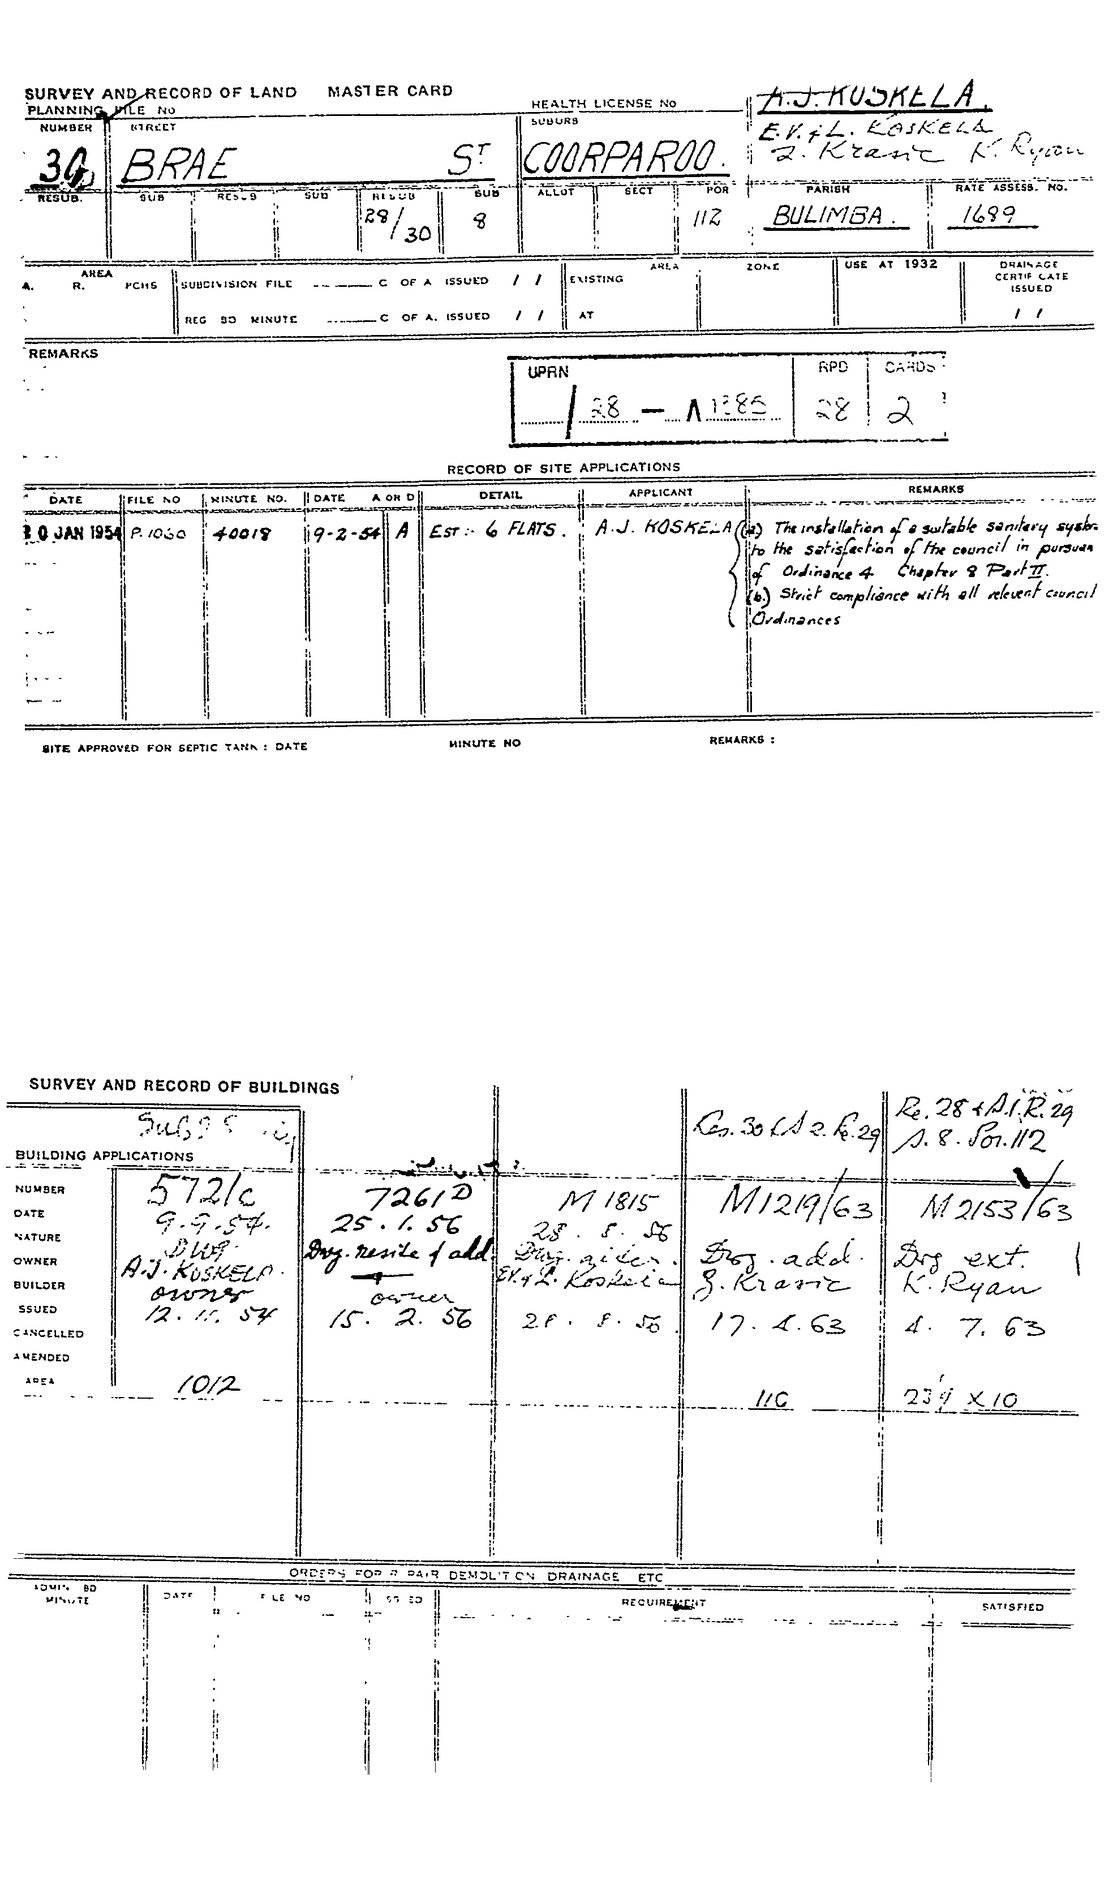 SURVEY AND RECORD OF LAND MASTER CARD
A.J. KOSKELA.
PLANNING FILE No
HEALTH LICENSE No
E.V. & L. KOSKELA
Z. Krasic K. Ryan
NUMBER STREET SUBURB
BRAE ST COORPAROO.
RESUB. SUB RESUB SUB RESUB SUB ALLOT SECT POR PARISH RATE ASSESS. No.
28/30 8 112 BULIMBA. 1689
AREA AREA ZONE USE AT 1932 DRAINAGE CERTIFICATE ISSUED
A. R. PCHS SUBDIVISION FILE C OF A ISSUED / / EXISTING
REG BD MINUTE C OF A. ISSUED / / AT / /
REMARKS
UPRN RPD CARDS
/ 28 — 28 2
RECORD OF SITE APPLICATIONS
DATE FILE NO MINUTE NO. DATE A OR D DETAIL APPLICANT REMARKS
20 JAN 1954 P.1060 40018 9-2-54 A EST:- 6 FLATS. A.J. KOSKELA (a) The installation of a suitable sanitary
to the satisfaction of the council in
of Ordinance 4 Chapter 8 Part II.
(b.) Strict compliance with all relevent council
Ordinances
SITE APPROVED FOR SEPTIC TANK : DATE MINUTE NO REMARKS :
SURVEY AND RECORD OF BUILDINGS
Res. 30 & S 2. Re. 29 Re. 28 & S.1. R. 29
S. 8. Por. 112
BUILDING APPLICATIONS
NUMBER 572/c 7261 D M 1815 M1219/63 M2153/63
DATE 9.9.54. 25.1.56 28.8.56
NATURE Dwg. Dwg. resite & add. Dwg. Dwg. add. Dwg ext.
OWNER A.J. KOSKELA. E.V. & L. Koskela Z. Krasic K. Ryan
BUILDER owner owner
ISSUED 12.11.54 15.2.56 28.8.56. 17.4.63 4.7.63
CANCELLED
AMENDED
AREA 1012 110
ORDERS FOR REPAIR DEMOLITION DRAINAGE ETC
ADMIN BD MINUTE DATE FILE NO ISSUED REQUIREMENT SATISFIED